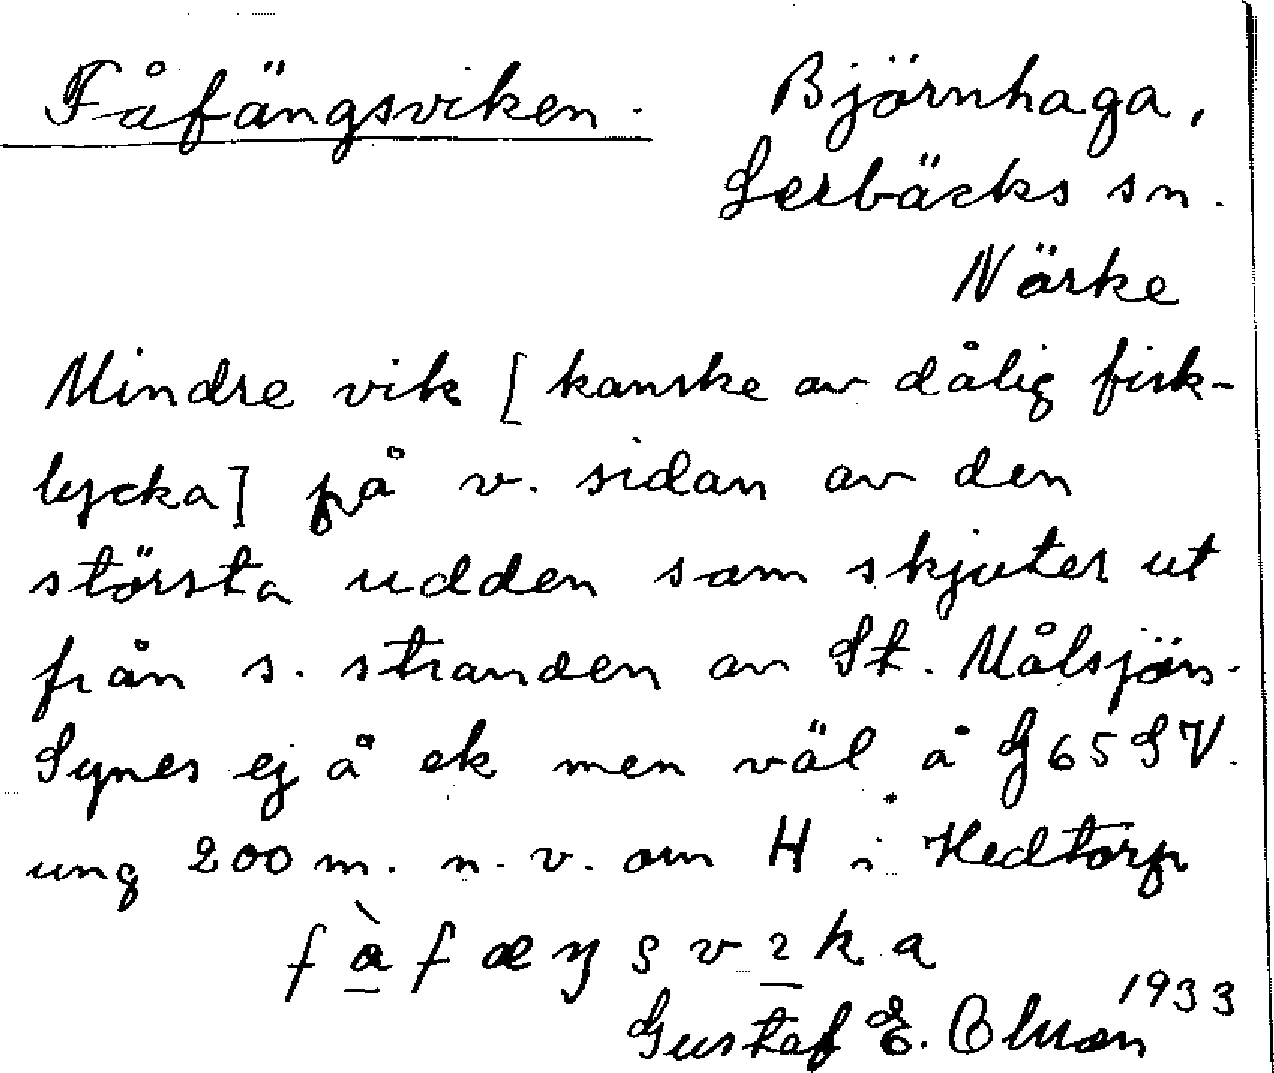 Fåfängsviken. Björnhaga,
Lerbäcks sn.
Närke
Mindre vik [kanske av dålig fisk-
lycka] på v. sidan av den
största udden som skjuter ut
från s. stranden av St. Målsjön.
Synes ej å ek men väl å G 65 SV.
ung 200 m. n. v. om H i Hedtorp
1933
Gustaf E.